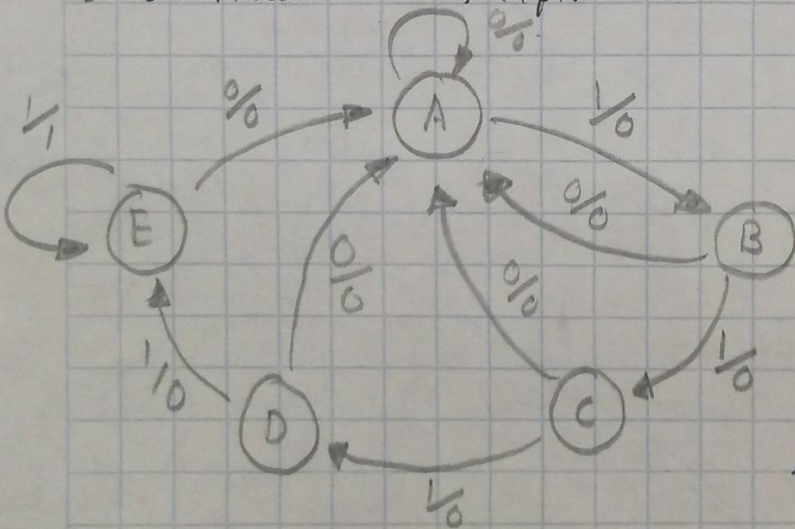 0/0
A
1/0
1/1
0/0
0/0
E
B
0/0
0/0
1/0
1/0
D
C
1/0